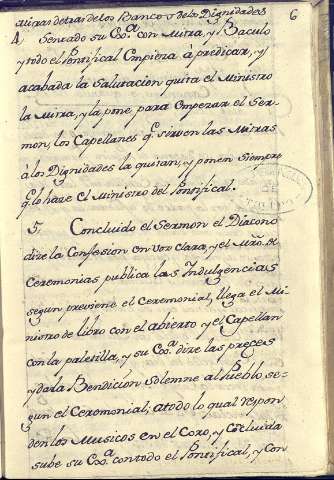 Miras detras de los Bancos de la Dignidades
6
4. Sentado su Exª. con Mitra, y Baculo
y todo el Pontifical Empieza à predicar, y
acabada la Salutacion quita el Ministro
la Mitra, y la pone para Empezar el Ser-
mon, los Capellanes qe. sirven las Mitras
à los Dignidades la quitan, y ponen siempre
qe. lo hace el Ministro del Pontifical.
5. Concluido el Sermon el Diacono
dize la Confesion en voz clara, y el Mro. de
Ceremonias publica las Indulgencias
segun previene el Ceremonial, llega el Mi-
nistro de libro con el abierto y el Capellan
con la paletilla, y su Exª. dize las preces
y da la Bendicion Solemne al Pueblo se-
gun el Ceremonial, a todo lo qual respon-
den los Musicos en el Coro, y Concluida
sube su Exª. con todo el Pontifical, y con